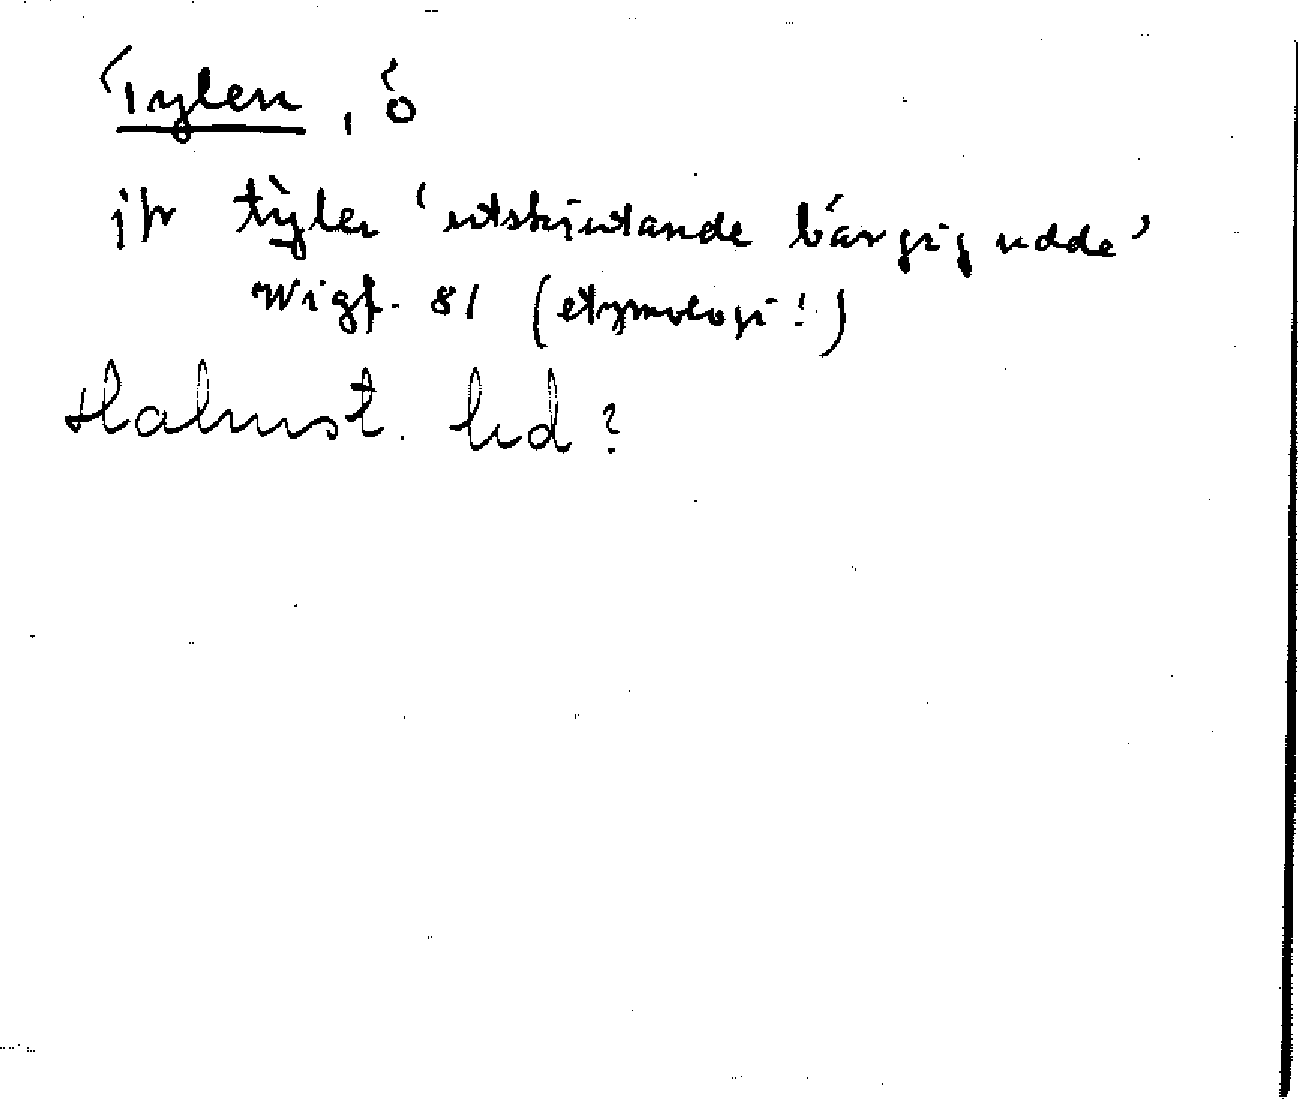 Tylen, ö
jfr tylen 'utskjutande bärgig udde'
Wigf. 81 (etymologi!)
Halmst. hd?